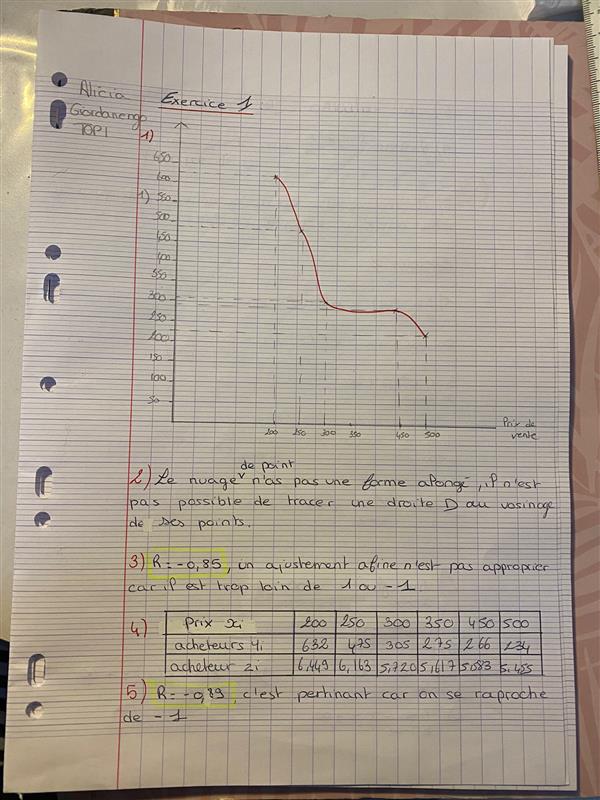 Alicia
Giordanengo
TOP1
Exercice 1
1)
650
600
550
1)
500
450
400
550
300
250
200
150
100
50
200 250 300 350 450 500
Prix de
vente
2) Le nuage de point n'as pas une forme alongé, il n'est
pas possible de tracer une droite D au vosinage
de ses points.
3) R = -0,85, un ajustement afine n'est pas approprier
car il est trop loin de 1 ou -1
4) Prix xi 200 250 300 350 450 500
acheteurs yi 632 475 305 275 266 234
acheteur zi 6,449 6,163 5,720 5,617 5,583 5,455
5) R = -0,89, c'est pertinant car on se raproche
de -1